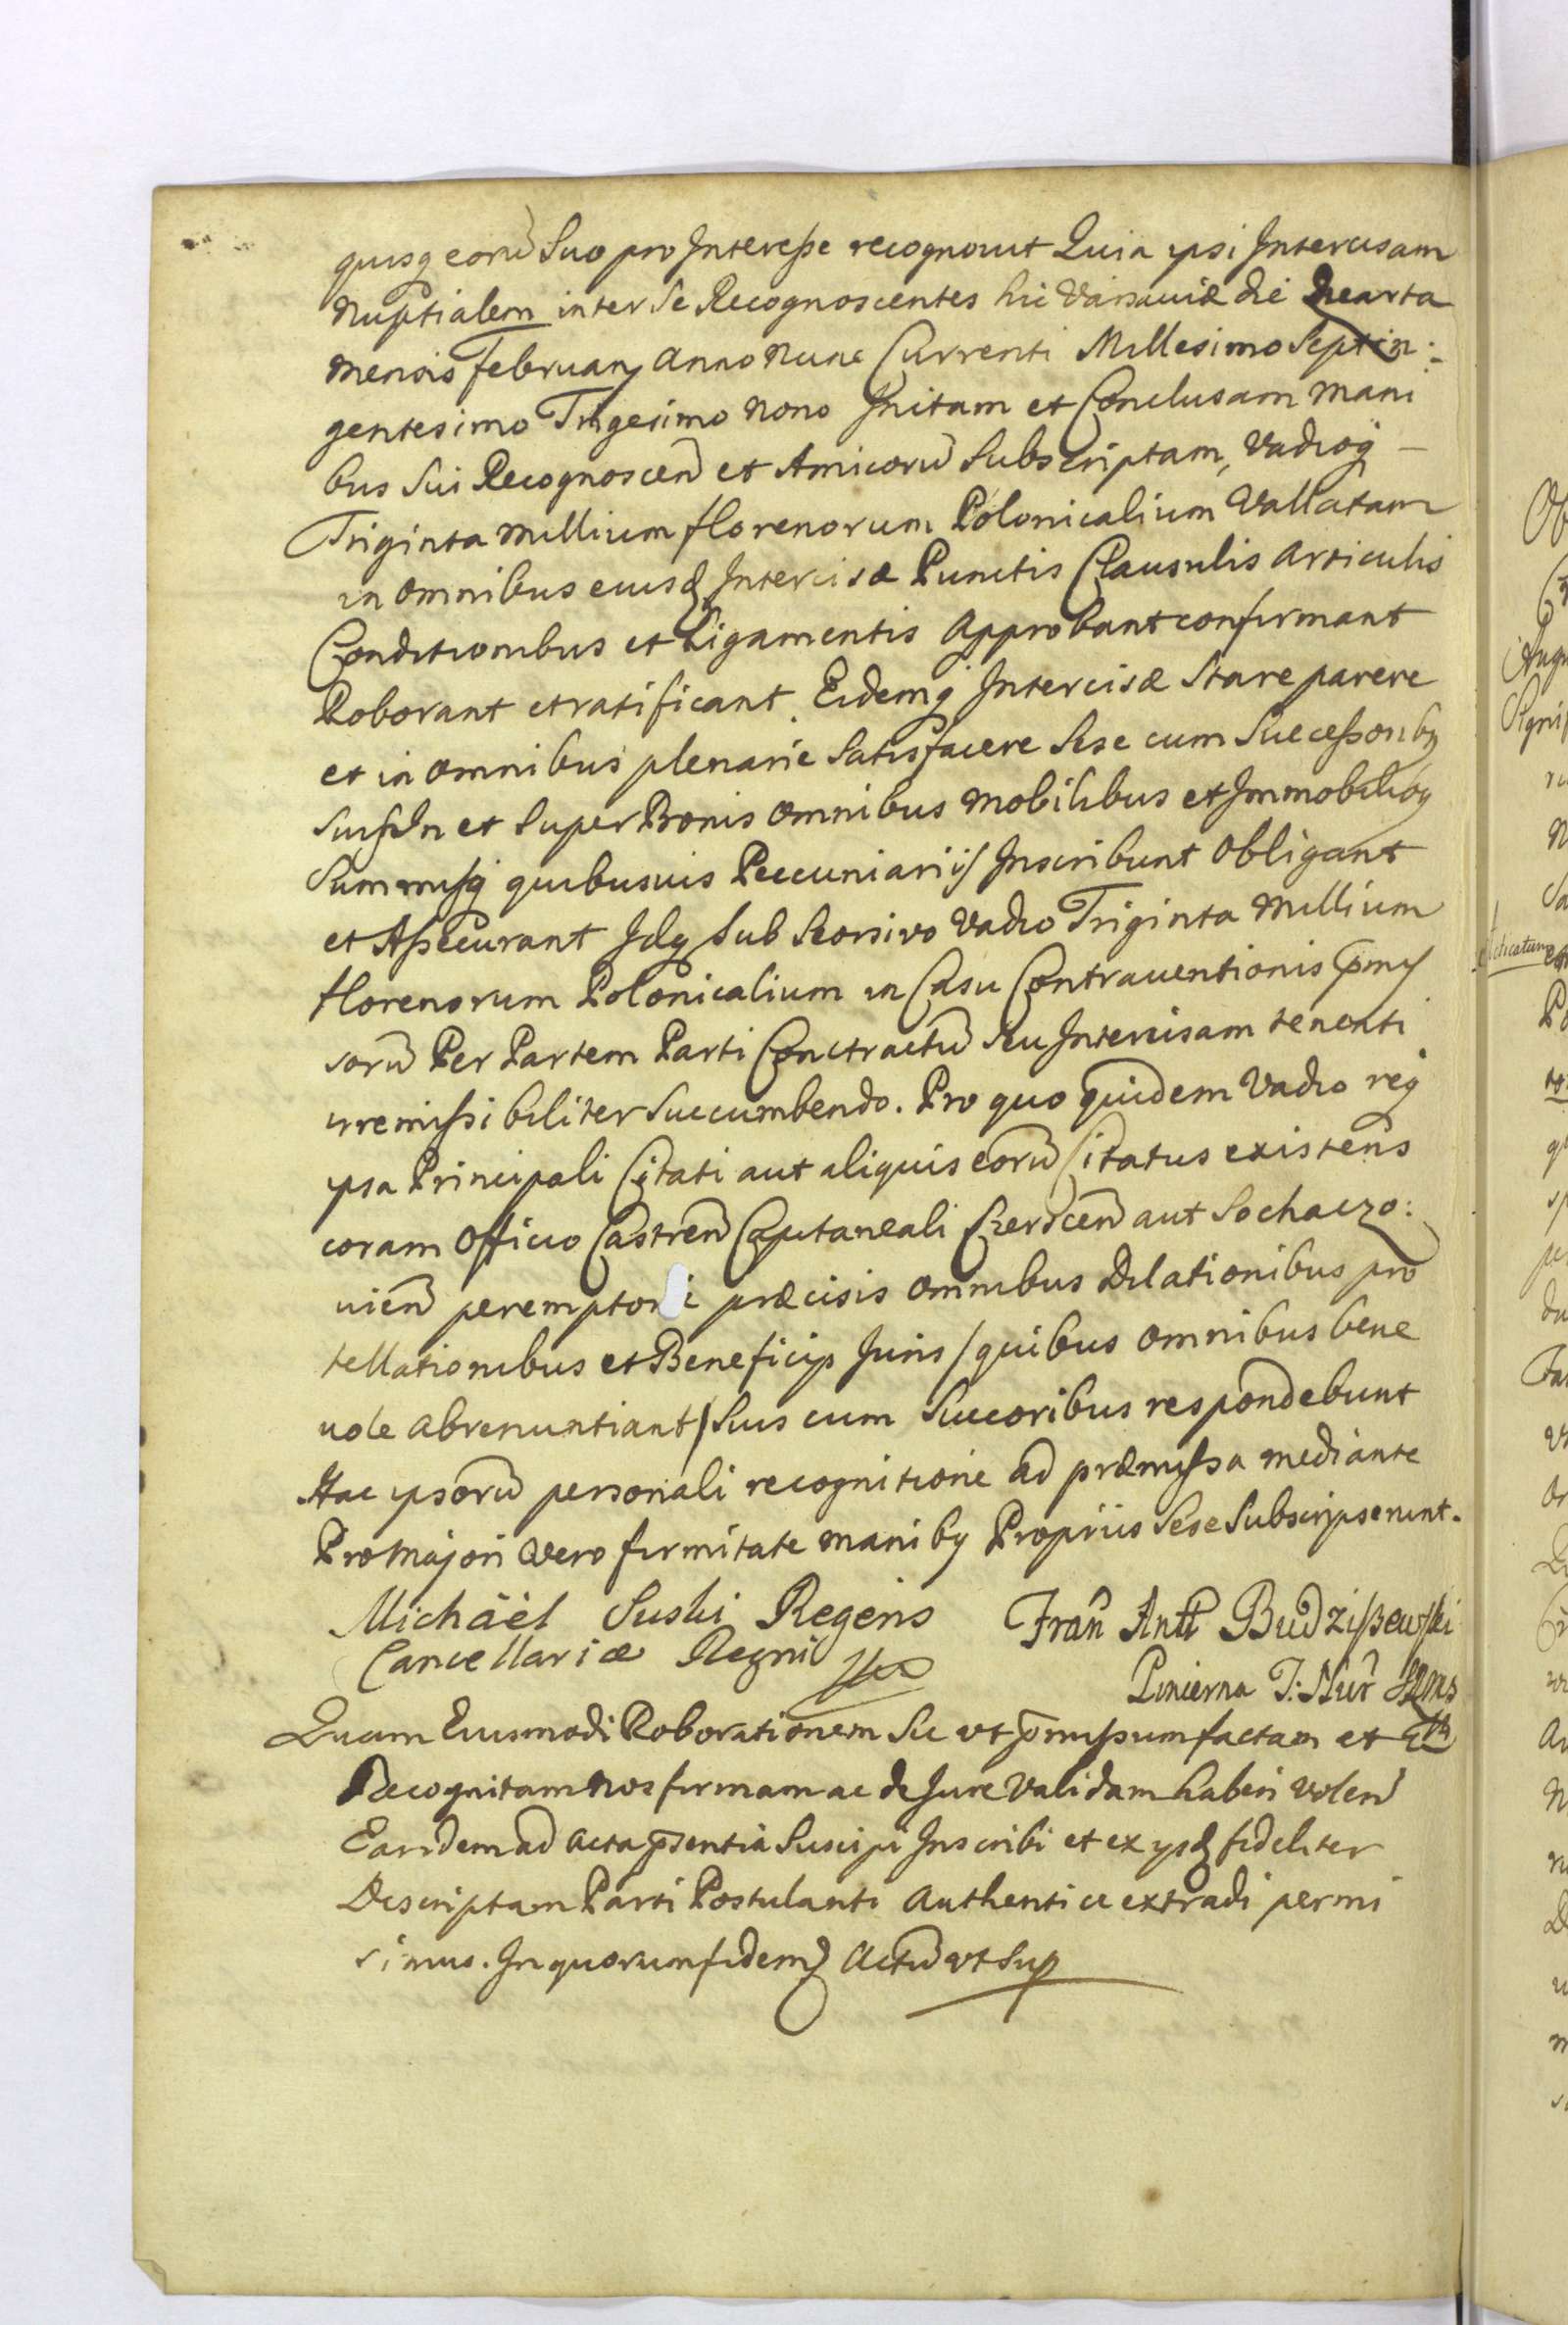 quisq eorū Suo pro Interesse recognovit Quia ipsi Intercisam
Nuptialem inter Se Recognoscentes hic Varsaviæ die Quarta
mensis February Anno Nunc Currenti Millesimo Septin:
gentesimo Trigesimo Nono Initam et Conclusam Mani
bus Sui Recognoscen̄ et Amicorū Subscriptam, Vadioq
Triginta Millium florenorum Polonicalium Vallatam
in omnibus eiusd Intercisæ Punctis Clausulis Articulis
Conditionibus et Ligamentis Approbant confirmant
Roborant et ratificant. Eidemq Intercisæ Stare parere
et in omnibus plenarie Satisfacere Sese cum Successoriby
Suis In et Super Bonis omnibus Mobilibus et Immobiliby
Summisq quibusvis Peccuniariis Inscribunt Obligant
et Assecurant Idq Sub Seorsivo Vadio Triginta Millium
florenorum Polonicalium in Casu Contraventionis p̄mis
sorū Per Partem Parti Conctractū seu Intercisam tenenti
irremissibiliter Succumbendo. Pro quo quidem Vadio req
ipsa Principali Citati aut aliquis eorū Citatus existens
coram Officio Castren̄ Capitaneali Cerscen̄ aut Sochaczo:
vien̄ peremptorie præcisis omnibus Dilationibus pro
tellationibus et Beneficijs Juris / quibus omnibus bene
vole abrenuntiant / Suis cum Succoribus respondebunt
Hac ipsorū personali recognitione ad præmissa mediante
Pro Majori Vero firmitate maniby Propriis Sese Subscripserunt.
Michäel Suski Regens Fran̄ Antt Budziszewski
Cancellariæ Regni
Pincerna T: Nur̄
Quam Eiusmodi Roborationem Sic ut p̄missum factam et
Recognitam Nos firmam ac de Jure Validam haberi volen̄
Eandem ad Acta p̄sentia Suscipi Inscribi et ex ysd fideliter
Descriptam Parti Postulanti Authentice extradi permi
simus. In quorum fidem Actū ut Sup